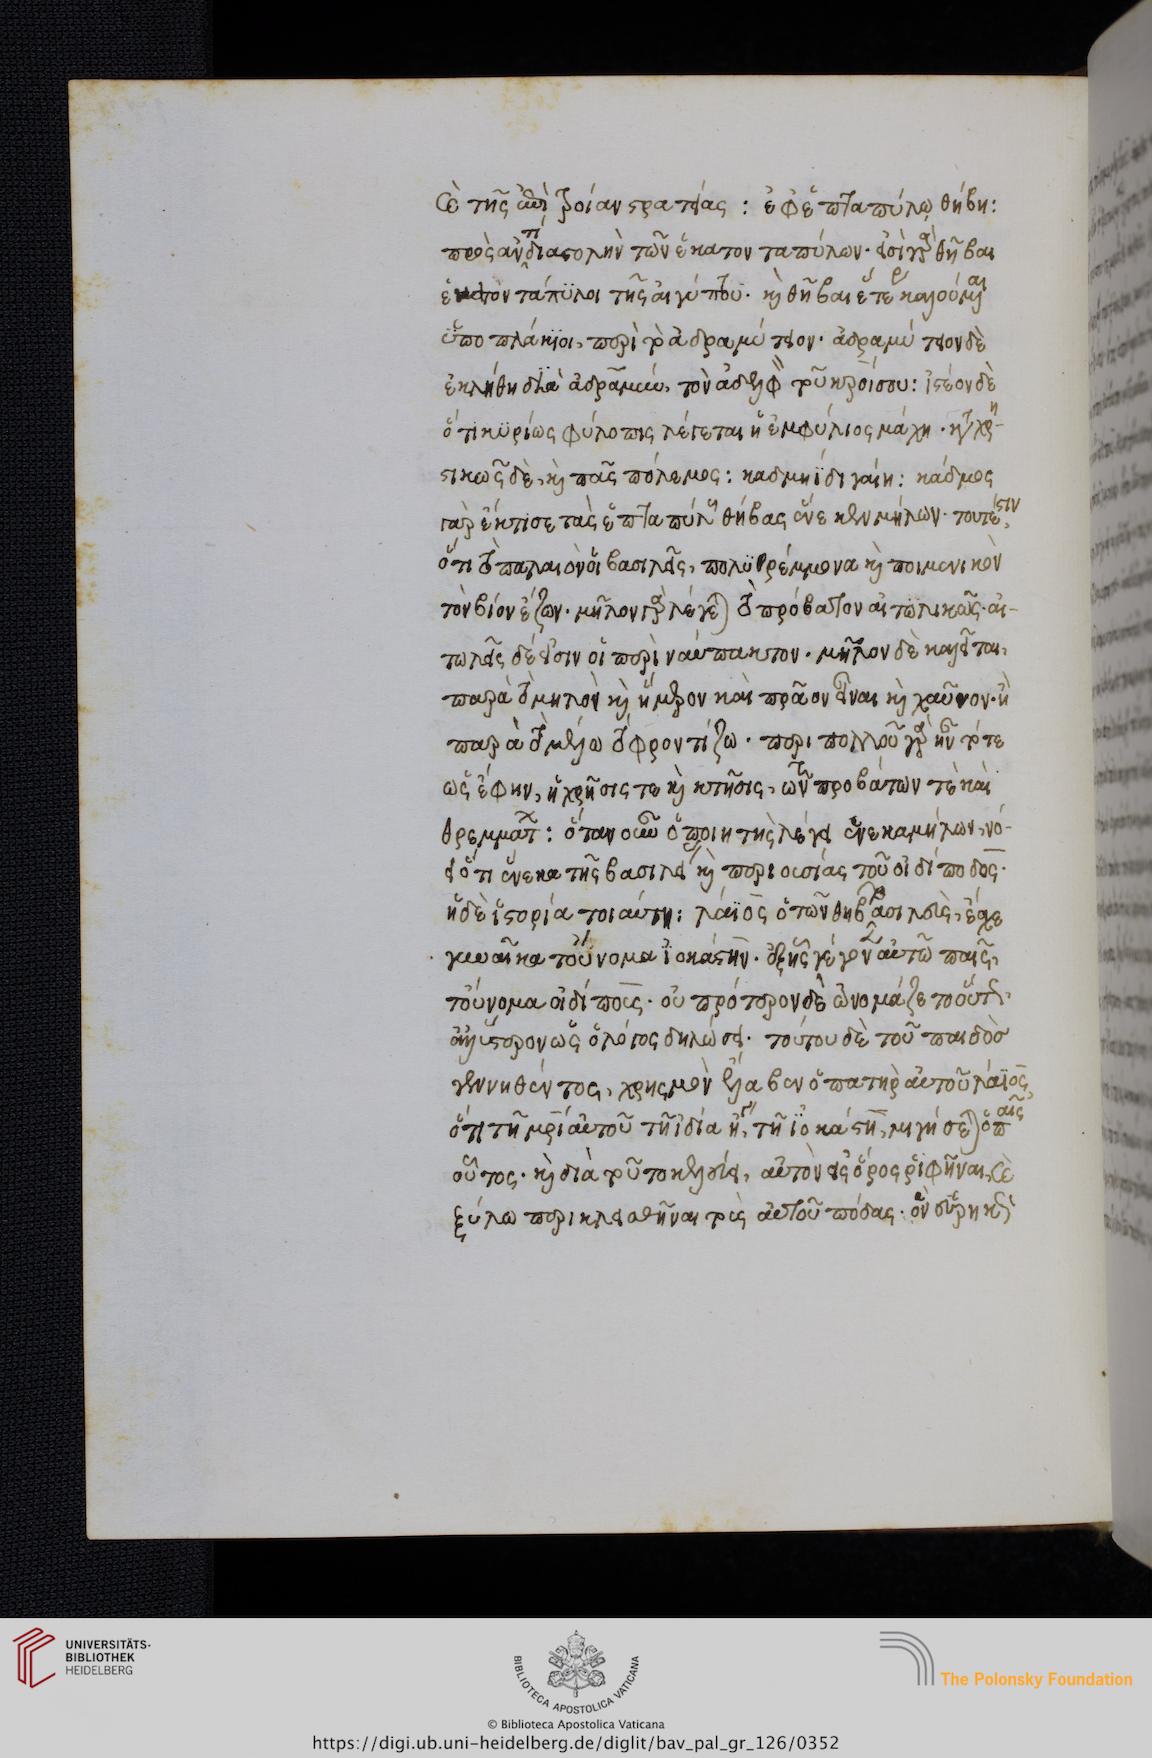 τῆς ἐπὶ τροίαν στρατείας : ἐφ ἑπταπύλῳ θήβῃ :
πρὸς ἀντιδιαστολὴν τῶν ἑκατονταπύλων · εἰσὶ γὰρ θῆβαι
ἑκατοντάπϋλοι τῆς αἰγύπτου · καὶ θῆβαι ἕτεραι καλούμεναι
ὑποπλάκϊοι, περὶ τὸ ἀδραμύτειον · ἀδραμύτειον δὲ
ἐκλήθη διὰ ἀδράμυν, τὸν ἀδελφὸν τοῦ κροίσου : ἰστέον δὲ
ὅτι κϋρίως φύλοπις λέγεται ἡ ἐμφύλιος μάχη · καταχρη-
στικῶς δὲ, καὶ πᾶς πόλεμος : καδμηΐδι γαίη : κάδμος
γὰρ ἔκτισε τὰς ἑπταπύλους θήβας ἕνεκεν μήλων · τουτέστιν
ὅτι τὸ παλαιὸν οἱ βασιλεῖς, πολϋθρέμμονα καὶ ποιμενικὸν
τὸν βίον ἔζων · μῆλον γὰρ λέγεται τὸ πρόβατον αἰτωλικῶς · αἰ-
τωλεῖς δέ εἰσιν οἱ περὶ ναύπακτον · μῆλον δὲ καλεῖται,
παρὰ τὸ μηλὸν καὶ ἥμερον καὶ πρᾶον εἶναι καὶ χαῦνον · ἢ
παρὰ τὸ μέλω τὸ φροντίζω · περὶ πολλοῦ γὰρ ἦν τότε
ὡς ἔφην, ἡ χρῆσις τε καὶ κτῆσις, τῶν προβάτων τὲ καὶ
θρεμμάτων : ὅταν οὖν ὁ ποιητὴς λέγει ἕνεκα μήλων, νό-
ει ὅτι ἕνεκα τῆς βασιλείας καὶ περιουσίας τοῦ οἰδίποδος ·
ἡ δὲ ἱστορία τοιαύτη : λάϊος ὁ τῶν θηβῶν βασιλεὺς, ἔσχε
γυναῖκα τοὔνομα ἰοκάστην · ἐξ ἧς γέγονεν αὐτῷ παῖς,
τοὔνομα οἰδίπους · οὐ πρότερον δὲ ὠνομάζετο οὕτως
ἀλλ' ὕστερον ὡς ὁ λόγος δηλώσει · τούτου δὲ τοῦ παιδὸσ
γεννηθέντος, χρησμὸν ἔλαβεν ὁ πατὴρ αὐτοῦ λάϊος,
ὅτι τῇ μητρὶ αὐτοῦ τῇ ἰδία ἤγουν, τῇ ἰοκάστη, μιγήσεται ὁ παῖς
οὗτος · καὶ διὰ τοῦτο κελεύει, αὐτὸν εἰς ὄρος ῥιφῆναι, καὶ
ξύλω περικλεισθῆναι τοὺς αὐτοῦ πόδας · ὃν εὑρηκὼς